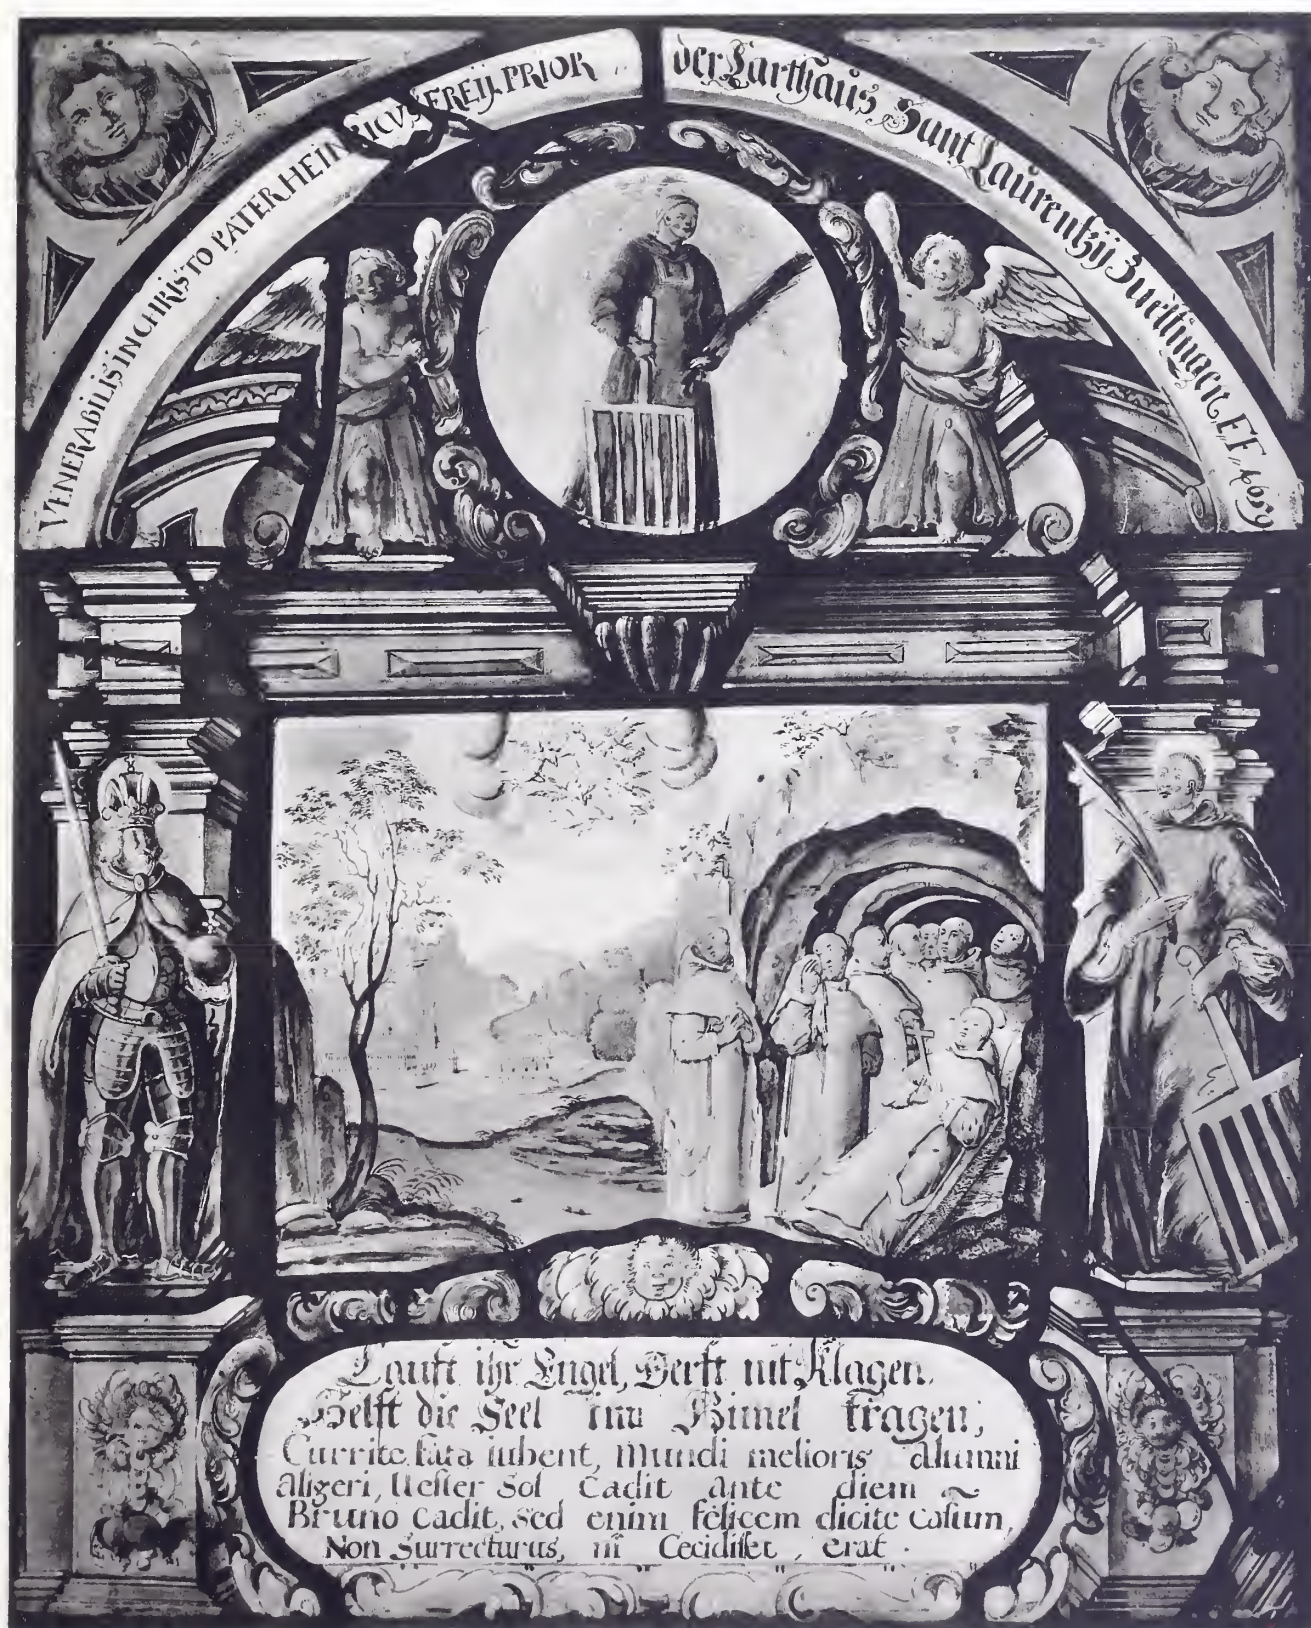 VENERABILIS IN CHRISTO PATER HEINRICUS FREIJ. PRIOR
der Carthaus Sant Laurentzij Zue Ittingen, 1659
Lauft ihr Engel, Derft nit Klagen,
Helft die Seel inn Himel tragen;
Currite fata iubent, Mundi melioris alumni
Aligeri, Uester Sol Cadit ante diem ~
Bruno Cadit, Sed enim felicem dicite Casum,
Non Surrecturus, ni Cecidisset, erat.